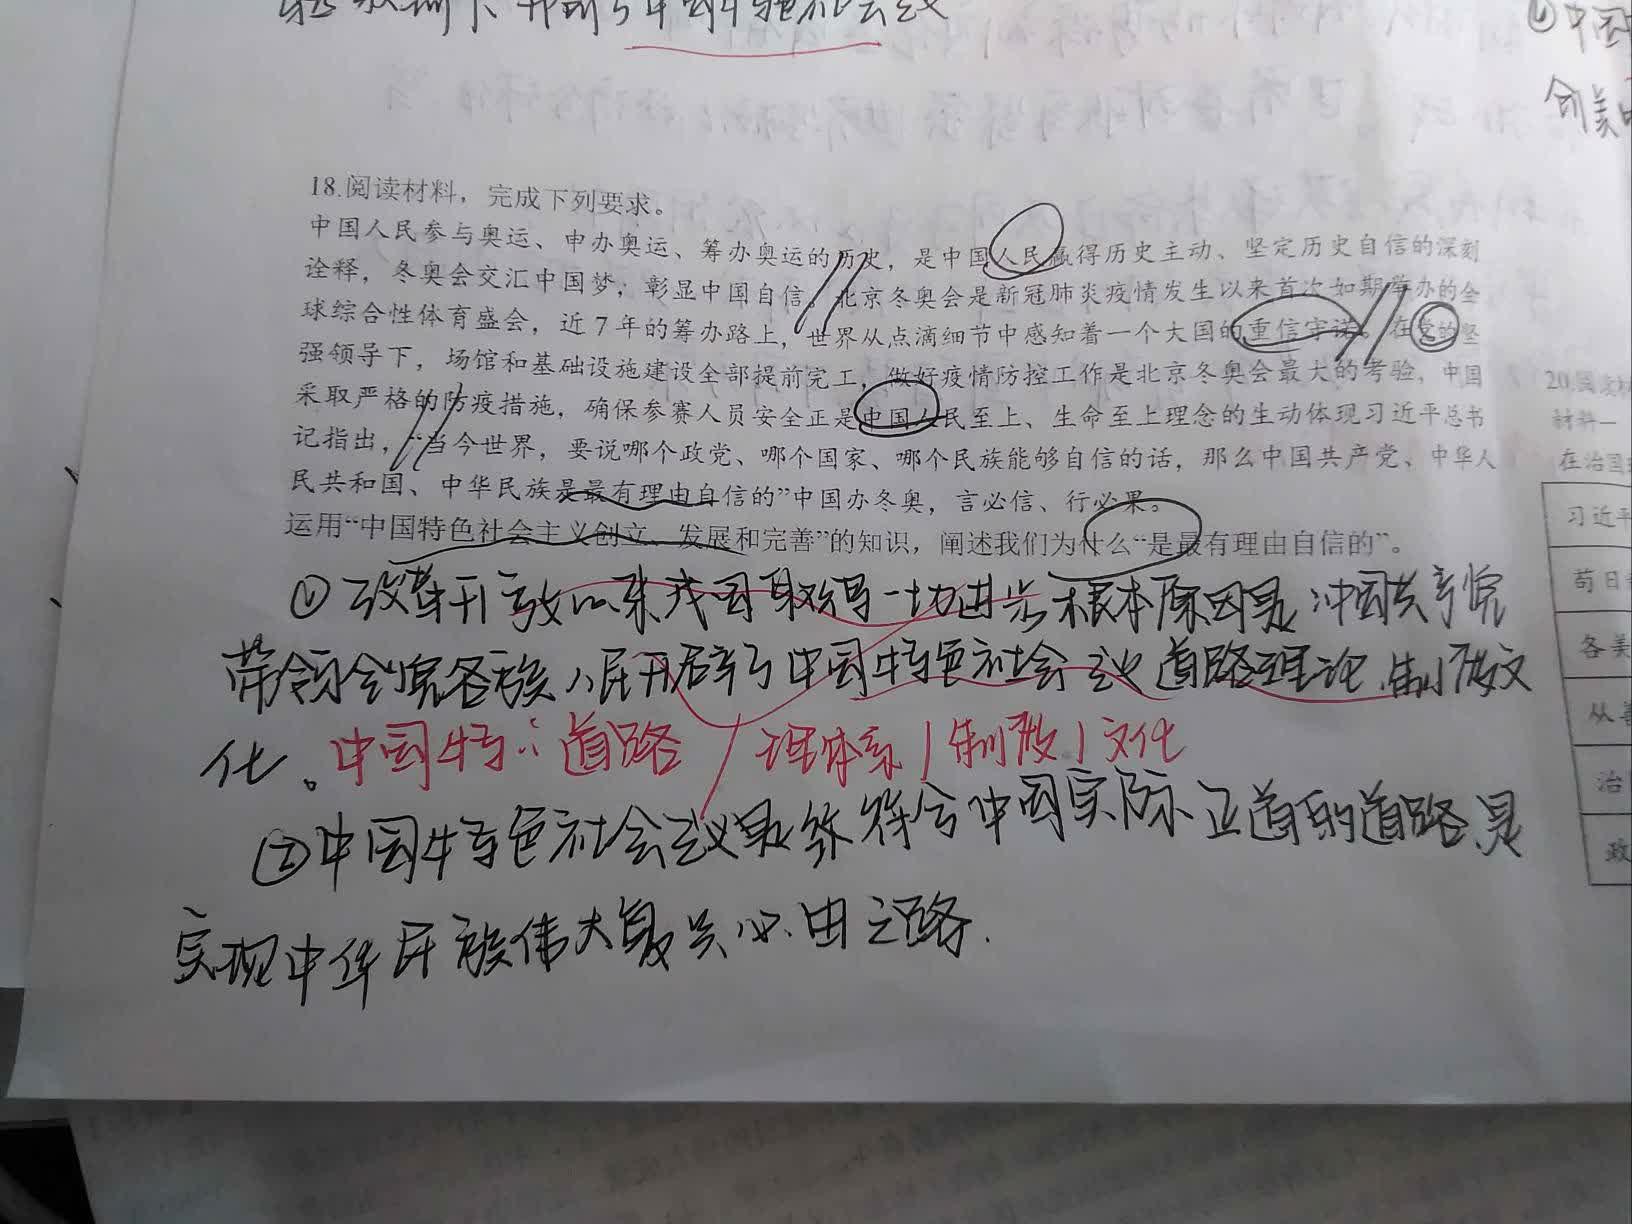 中国特色社会主义
18.阅读材料，完成下列要求。
中国人民参与奥运、申办奥运、筹办奥运的历史，是中国人民赢得历史主动、坚定历史自信的深刻
诠释，冬奥会交汇中国梦；彰显中国自信。北京冬奥会是新冠肺炎疫情发生以来首次如期举办的全
球综合性体育盛会，近7年的筹办路上，世界从点滴细节中感知着一个大国的重信守诺。在党的坚
强领导下，场馆和基础设施建设全部提前完工，做好疫情防控工作是北京冬奥会最大的考验，中国
采取严格的防疫措施，确保参赛人员安全正是中国人民至上、生命至上理念的生动体现习近平总书
记指出，“当今世界，要说哪个政党、哪个国家、哪个民族能够自信的话，那么中国共产党、中华人
民共和国、中华民族是最有理由自信的”中国办冬奥，言必信、行必果。
运用“中国特色社会主义创立、发展和完善”的知识，阐述我们为什么“是最有理由自信的”。
① 改革开放以来我国取得一切进步根本原因是：中国共产党
带领全党各族人民开辟了中国特色社会主义道路理论、制度文
化。中国特：道路/理体系/制度/文化
②中国特色社会主义是符合中国实际正道的道路、是
实现中华民族伟大复兴必由之路.
①中国
创美
20.阅读材
材料一
在治国
习近平
苟日
各美
从善
治
政